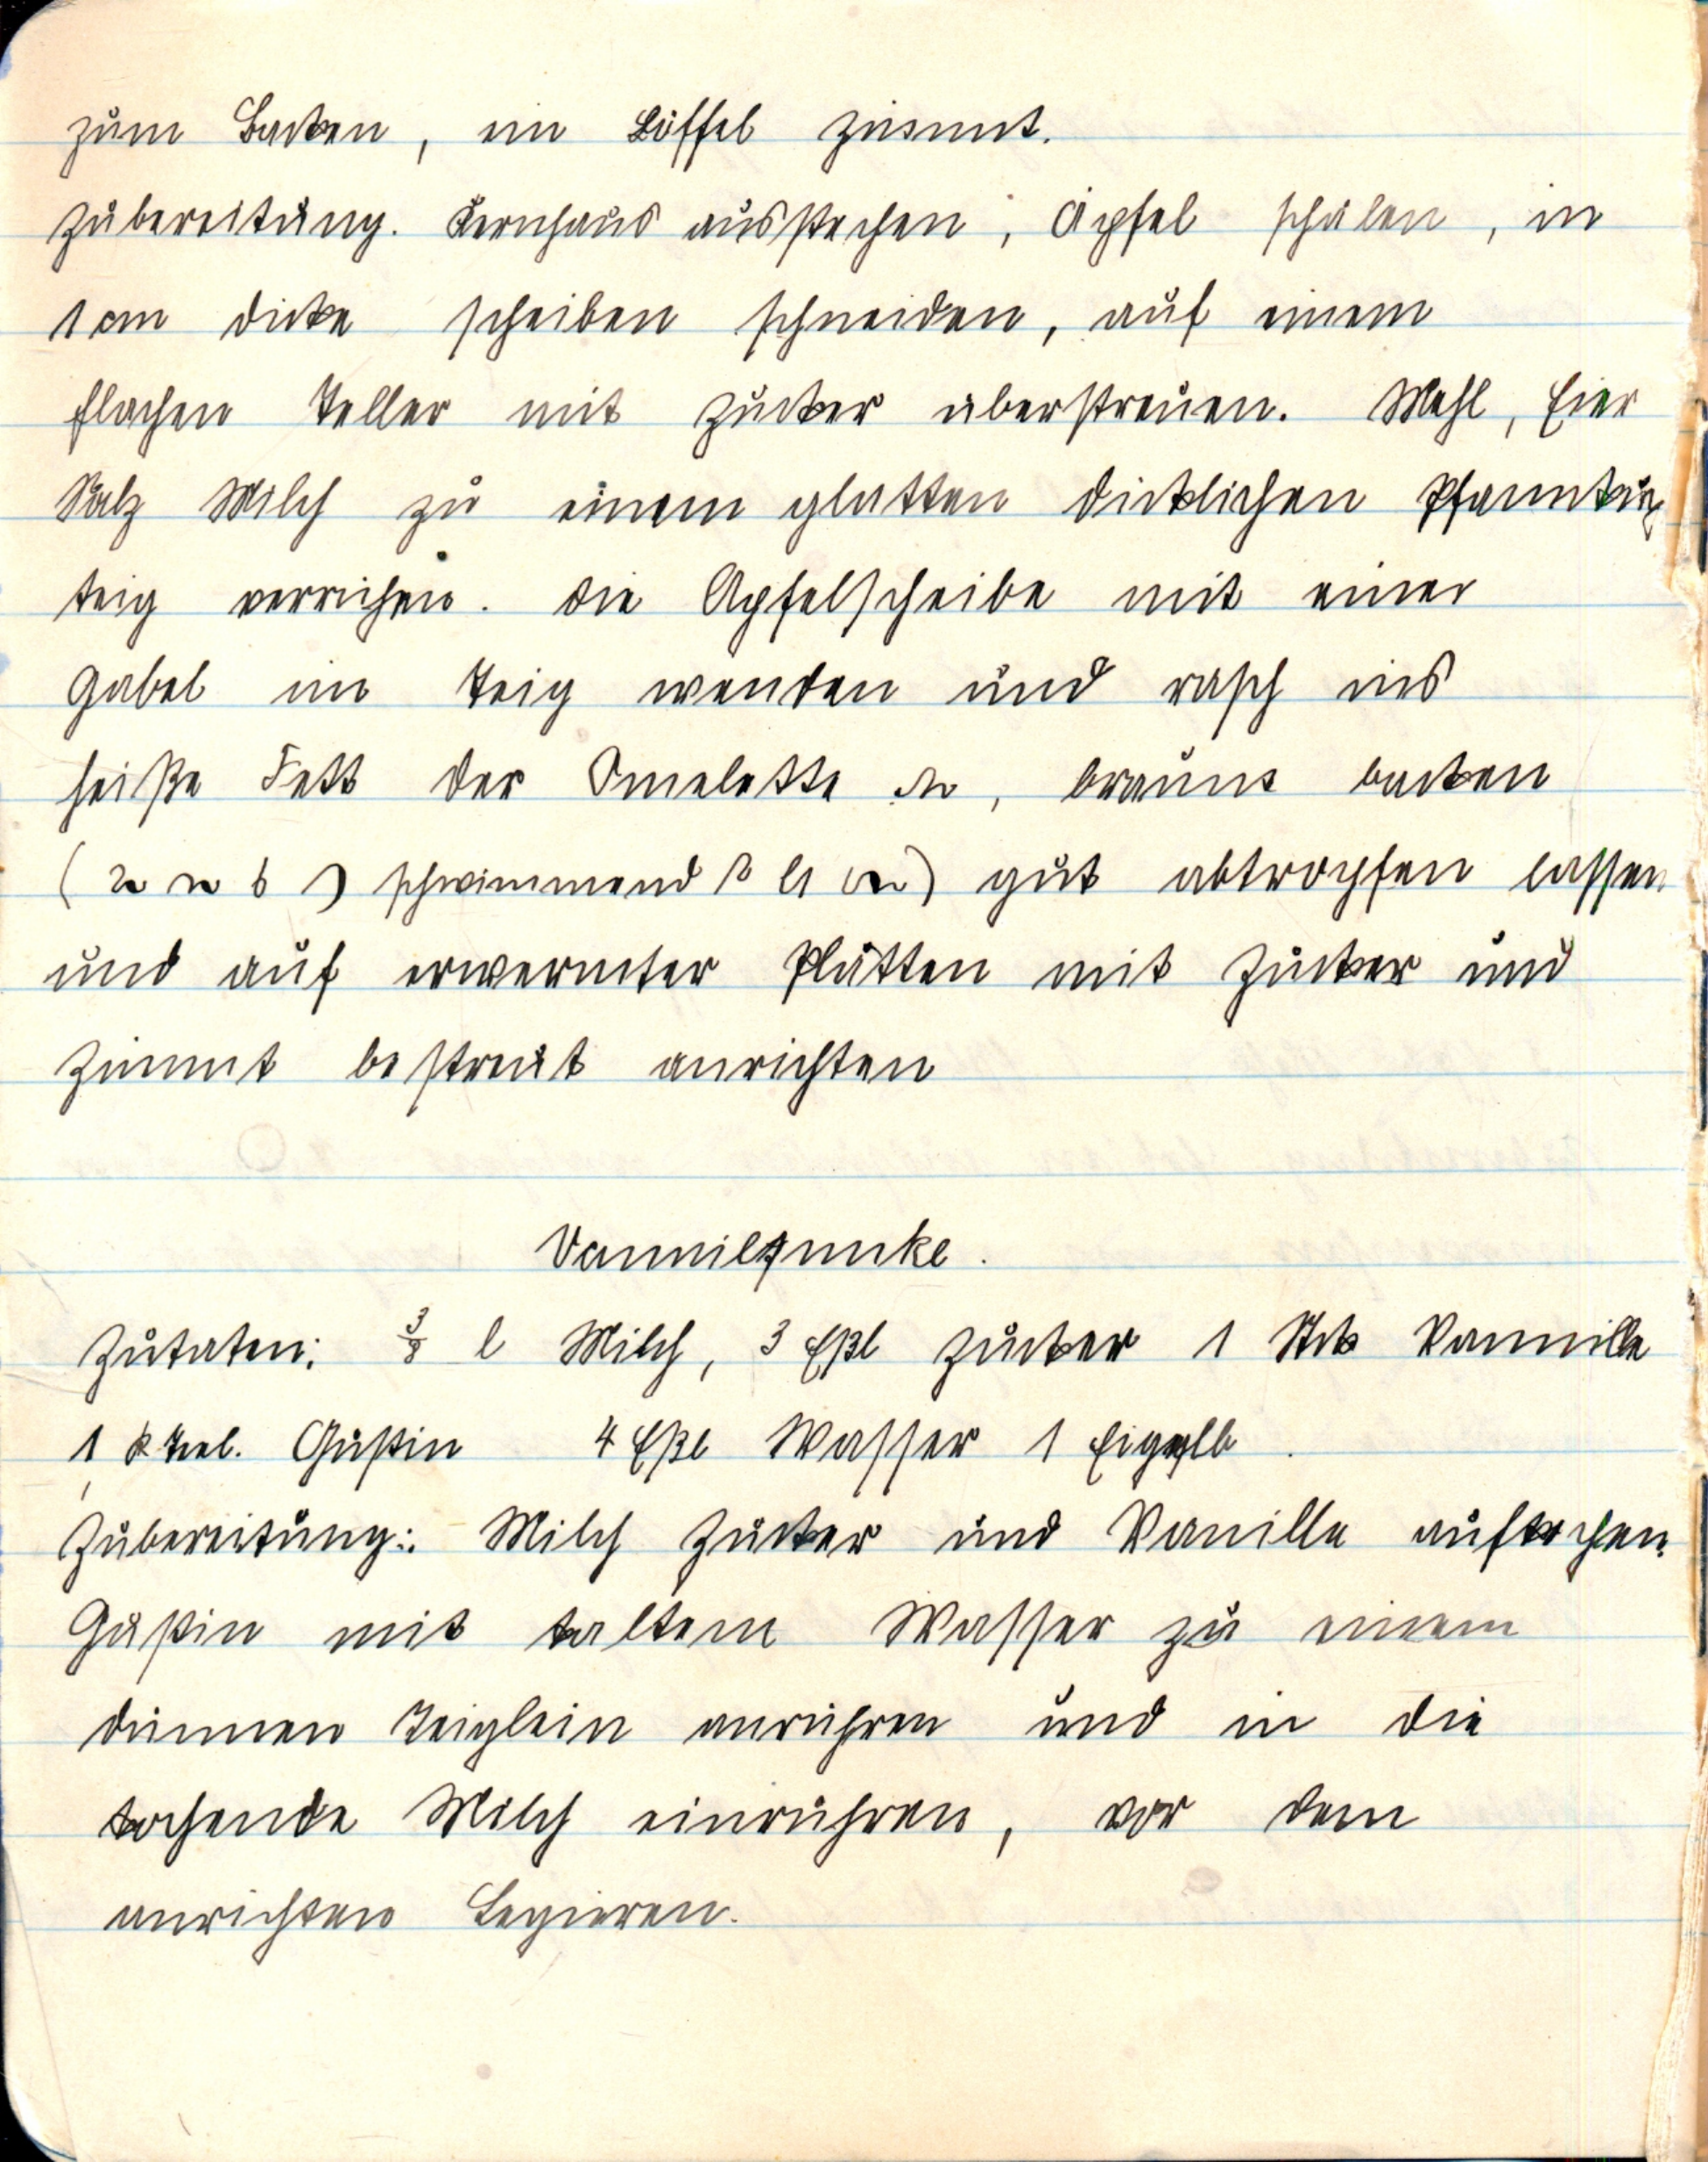 zum Backen, ein Löffel Zimmt.
Zubereitung. Kernhaus ausstechen, Äpfel schälen, in
1 cm dicke scheiben schneiden, auf einem
flachen Teller mit Zucker überstreuen. Mehl, Eier
Salz Milch zu einem glatten dicklichen
teig verrühren. die Apfelscheibe mit einer
Gabel im Teig wenden und rasch ins
heiße Fett der Omelette, backen
( schwimmend ) gut abtropfen lassen
und auf erwermter Platten mit Zucker und
Zimmt bestreut anrichten
Vanniltunke.
Zutaten: 3/8 l Milch, 3 Eßl Zucker 1 Stck Vannille
1 Gustin 4 Eßl Wasser 1 Eigelb.
Zubereitung: Milch Zucker und Vanille aufkochen.
Gustin mit kaltem Wasser zu einem
dünnen Teiglein anrühren und in die
kochende Milch einrühren, vor dem
anrichten Legieren.